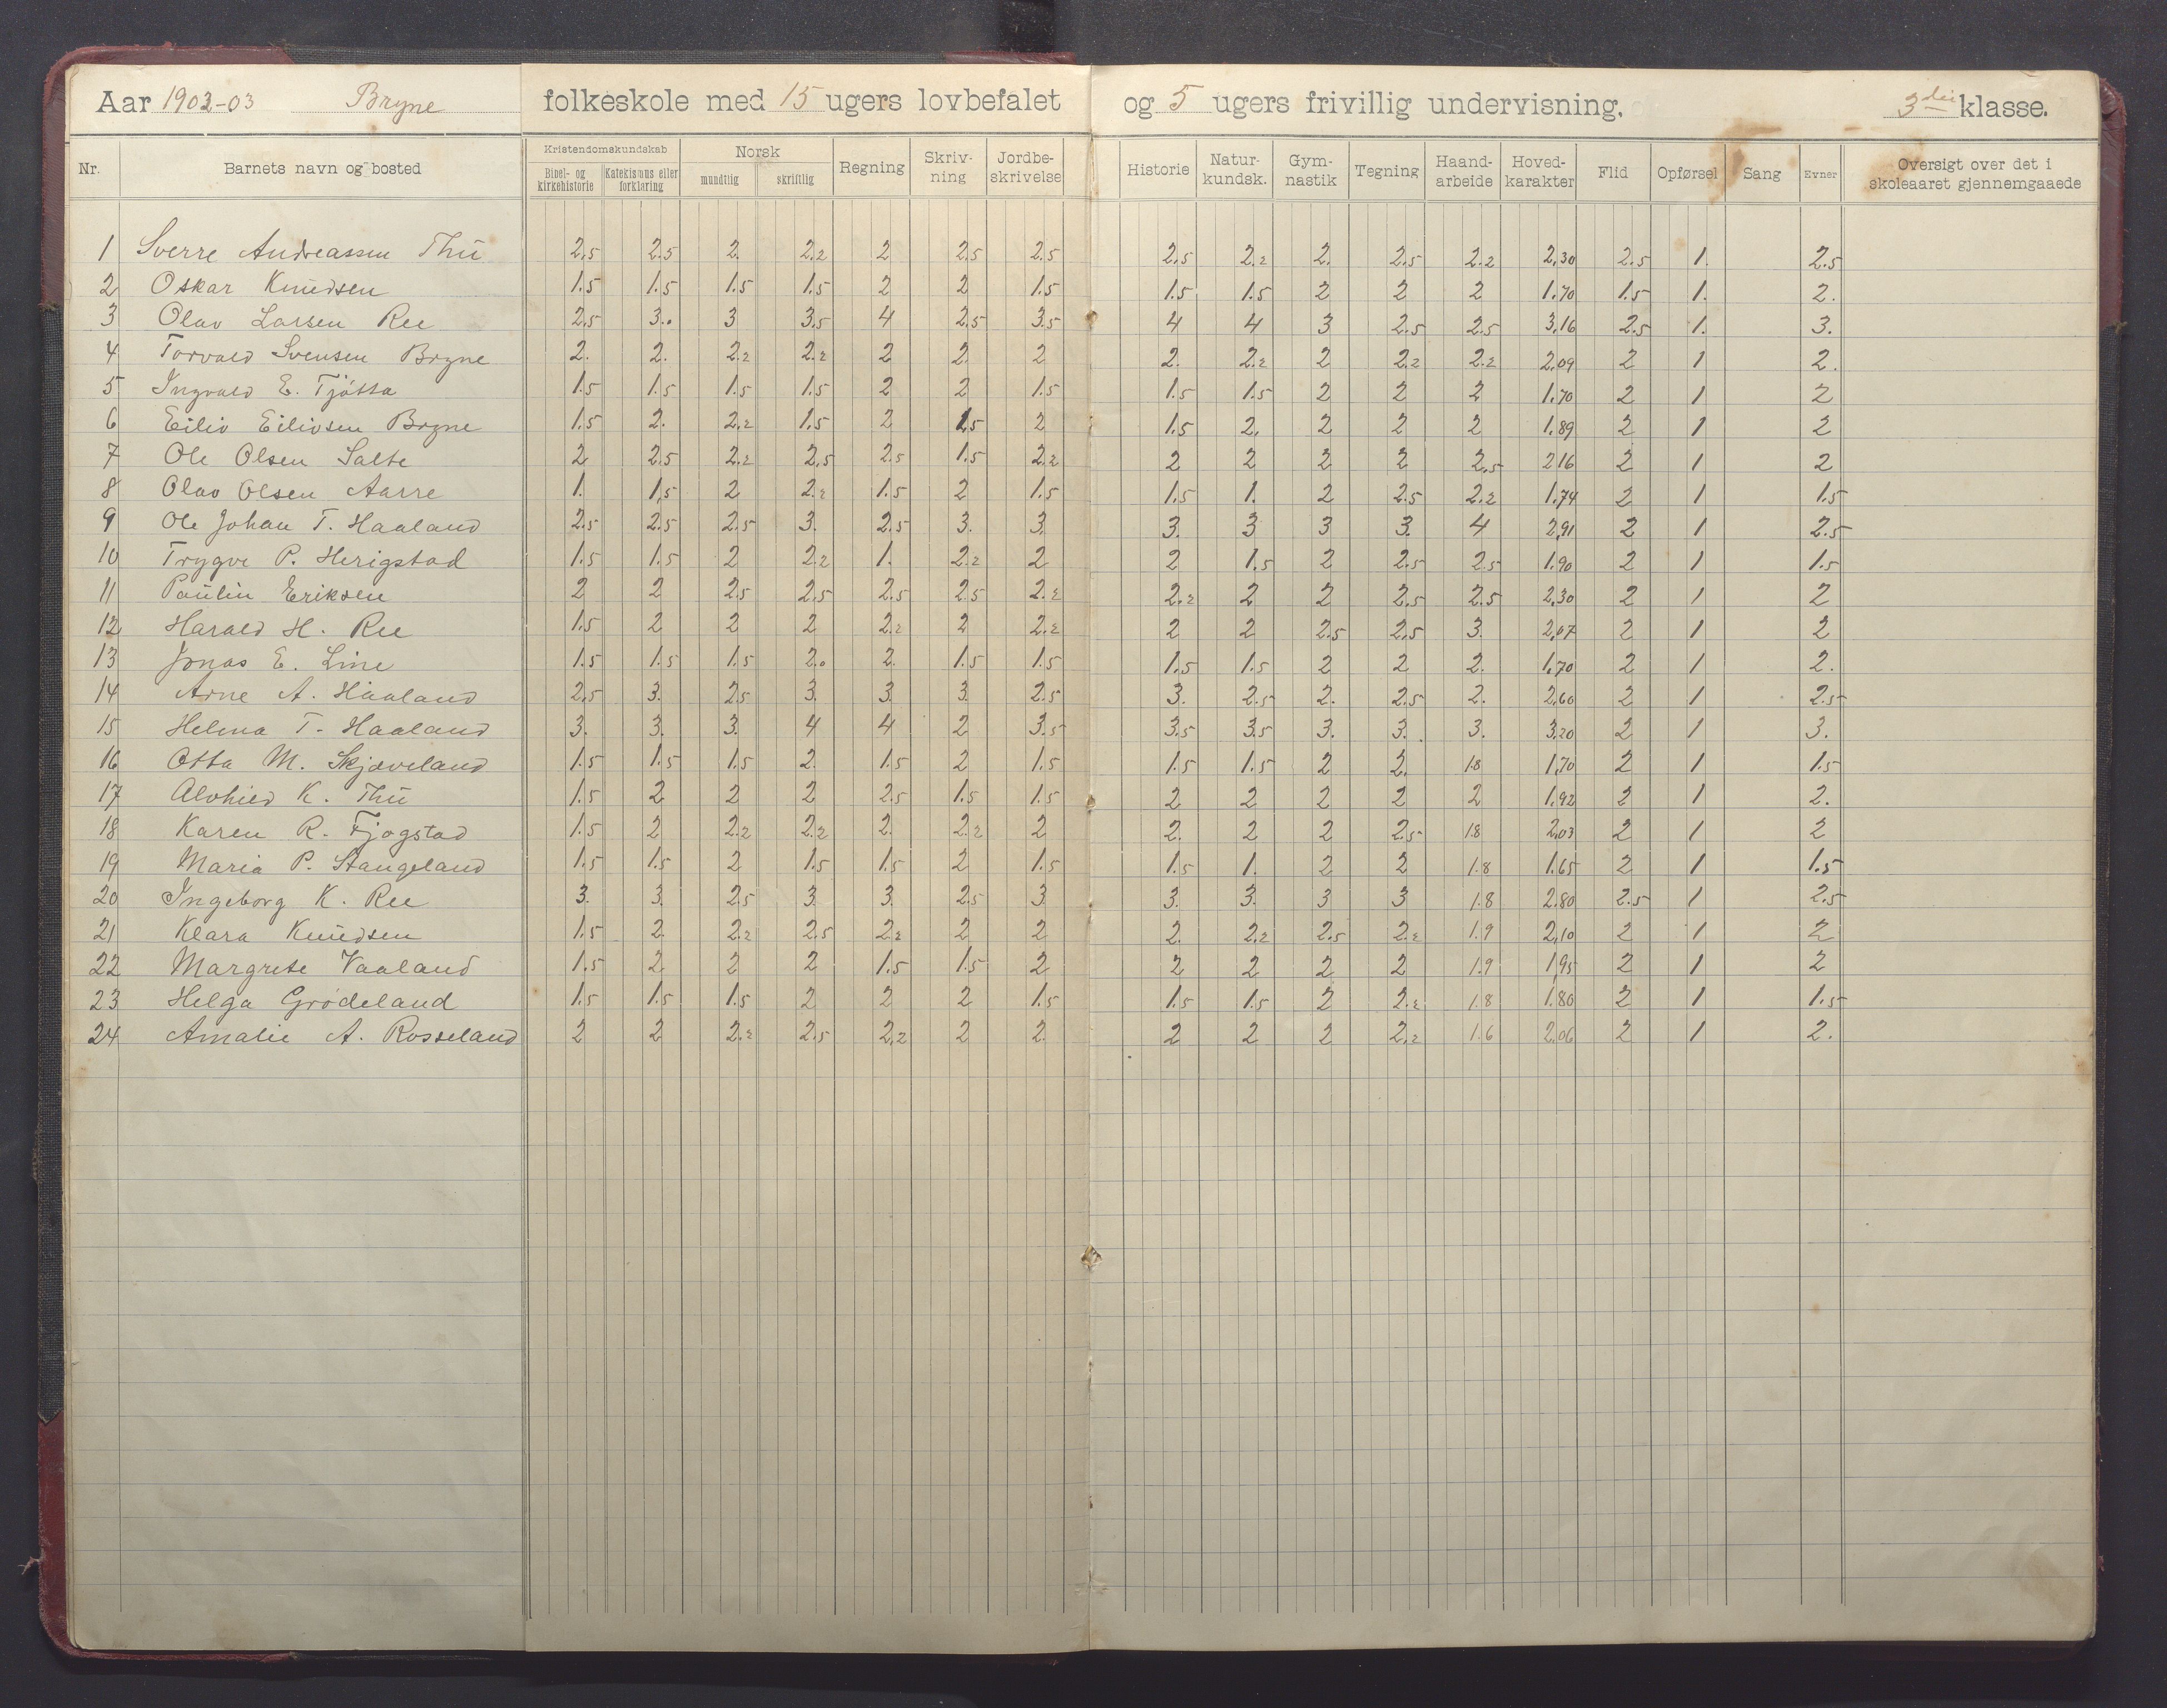 Aar 1902-03 Bryne folkeskole med 15 ugers lovbefalet og 5 ugers frivillig undervisning. 3die klasse.
Nr. Barnets navn og bosted Kristendomskundskab Bibel- og kirkehistorie Katekismus eller forklaring Norsk mundtlig skriftlig Regning Skriv- ning Jordbe- skrivelse Historie Natur- kundsk. Gym- nastik Tegning Haand- arbeide Hoved- karakter Flid Opførsel Sang Evner Oversigt over det i skoleaaret gjennemgaaede
1 Sverre Andreassen Thu 2,5 2.5 2. 2.2 2 2.5 2.5 2,5 2.2 2. 2,5 2.2 2,30 2.5 1. 2.5
2 Oskar Knudsen 1.5 1.5 1.5 1.5 2 2 1.5 1.5 1.5 2 2 2 1.70 1.5 1. 2.
3 Olav Larsen Ree 2,5 3.0 3 3,5 4 2,5 3.5 4 4 3 2.5 2.5 3,16 2.5 1. 3.
4 Torvald Svensen Bryne 2. 2. 2.2 2.2 2 2. 2 2. 2.2 2 2.2 2.2 2,09 2 1 2.
5 Ingvald E. Tjötta 1.5 1.5 1.5 1.5 2 2 1.5 1.5 1.5 2 2 2 1.70 2 1 2
6 Eiliv Eilivsen Bryne 1.5 2. 2.2 1.5 2 1.5 2 1.5 2. 2 2 2 1.89 2 1 2
7 Ole Olsen Salte 2 2,5 2.2 2,5 2.5 1.5 2.2 2 2 2 2 2,5 2,16 2 1 2
8 Olav Olsen Aarre 1. 1,5 2 2.2 1.5 2 1.5 1.5 1. 2 2.5 2.2 1.74 2 1 1.5
9 Ole Johan T. Haaland 2.5 2.5 2.5 3. 2.5 3. 3. 3. 3 3 3. 4 2,91 2 1 2.5
10 Trygve P. Herigstad 1.5 1.5 2 2.2 1. 2.2 2 2 1.5 2 2.5 2.5 1.90 2 1 1.5
11 Paulin Eriksen 2 2 2.5 2,5 2.5 2.5 2.2 2.2 2 2 2.5 2.5 2,30 2 1 2
12 Harald H. Ree 1.5 2 2 2 2.2 2 2.2 2 2 2.5 2,5 3. 2,07 2 1 2
13 Jonas E. Line 1.5 1.5 1.5 2.0 2. 1.5 1.5 1.5 1.5 2 2 2. 1,70 2 1 2.
14 Arne A. Haaland 2,5 3. 2.5 3. 3. 3. 2.5 3. 2.5 2. 2.5 2. 2,60 2 1 2.5
15 Helena T. Haaland 3. 3. 3. 4 4 2 3.5 3.5 3.5 3. 3. 3. 3.20 2 1 3.
16 Otta M. Skjæveland 1.5 1.5 1.5 2. 1.5 2 1.5 1.5 1.5 2 2. 1.8 1,70 2 1 1.5
17 Alvhild K. Thu 1.5 2 2 2 2.5 1.5 1.5 2 2 2 2 2 1.92 2 1 2.
18 Karen R. Fjogstad 1.5 2 2.2 2.2 2. 2.2 2 2. 2 2 2.5 1.8 2,03 2 1 2
19 Maria P. Stangeland 1.5 1.5 2 1.5 1.5 2 1.5 1.5 1. 2 2 1.8 1.65 2 1 1.5
20 Ingeborg K. Ree 3. 3. 2.5 3. 3. 2.5 3. 3. 3. 3 3 1.8 2.80 2.5 1 2.5
21 Klara Knudsen 1.5 2. 2.2 2.5 2.2 2 2 2. 2.2 2.5 2.2 1.9 2,10 2 1 2
22 Margrete Vaaland 1.5 2 2 2 1.5 1.5 2 2 2 2 2 1.9 1,95 2 1 2
23 Helga Grödeland 1.5 1.5 1.5 2 2 2 1.5 1.5 1.5 2 2.2 1.8 1.80 2 1 1.5
24 Amalie A. Rosseland 2 2 2.2 2.5 2.2 2 2. 2 2 2 2.2 1.6 2.06 2 1 2.